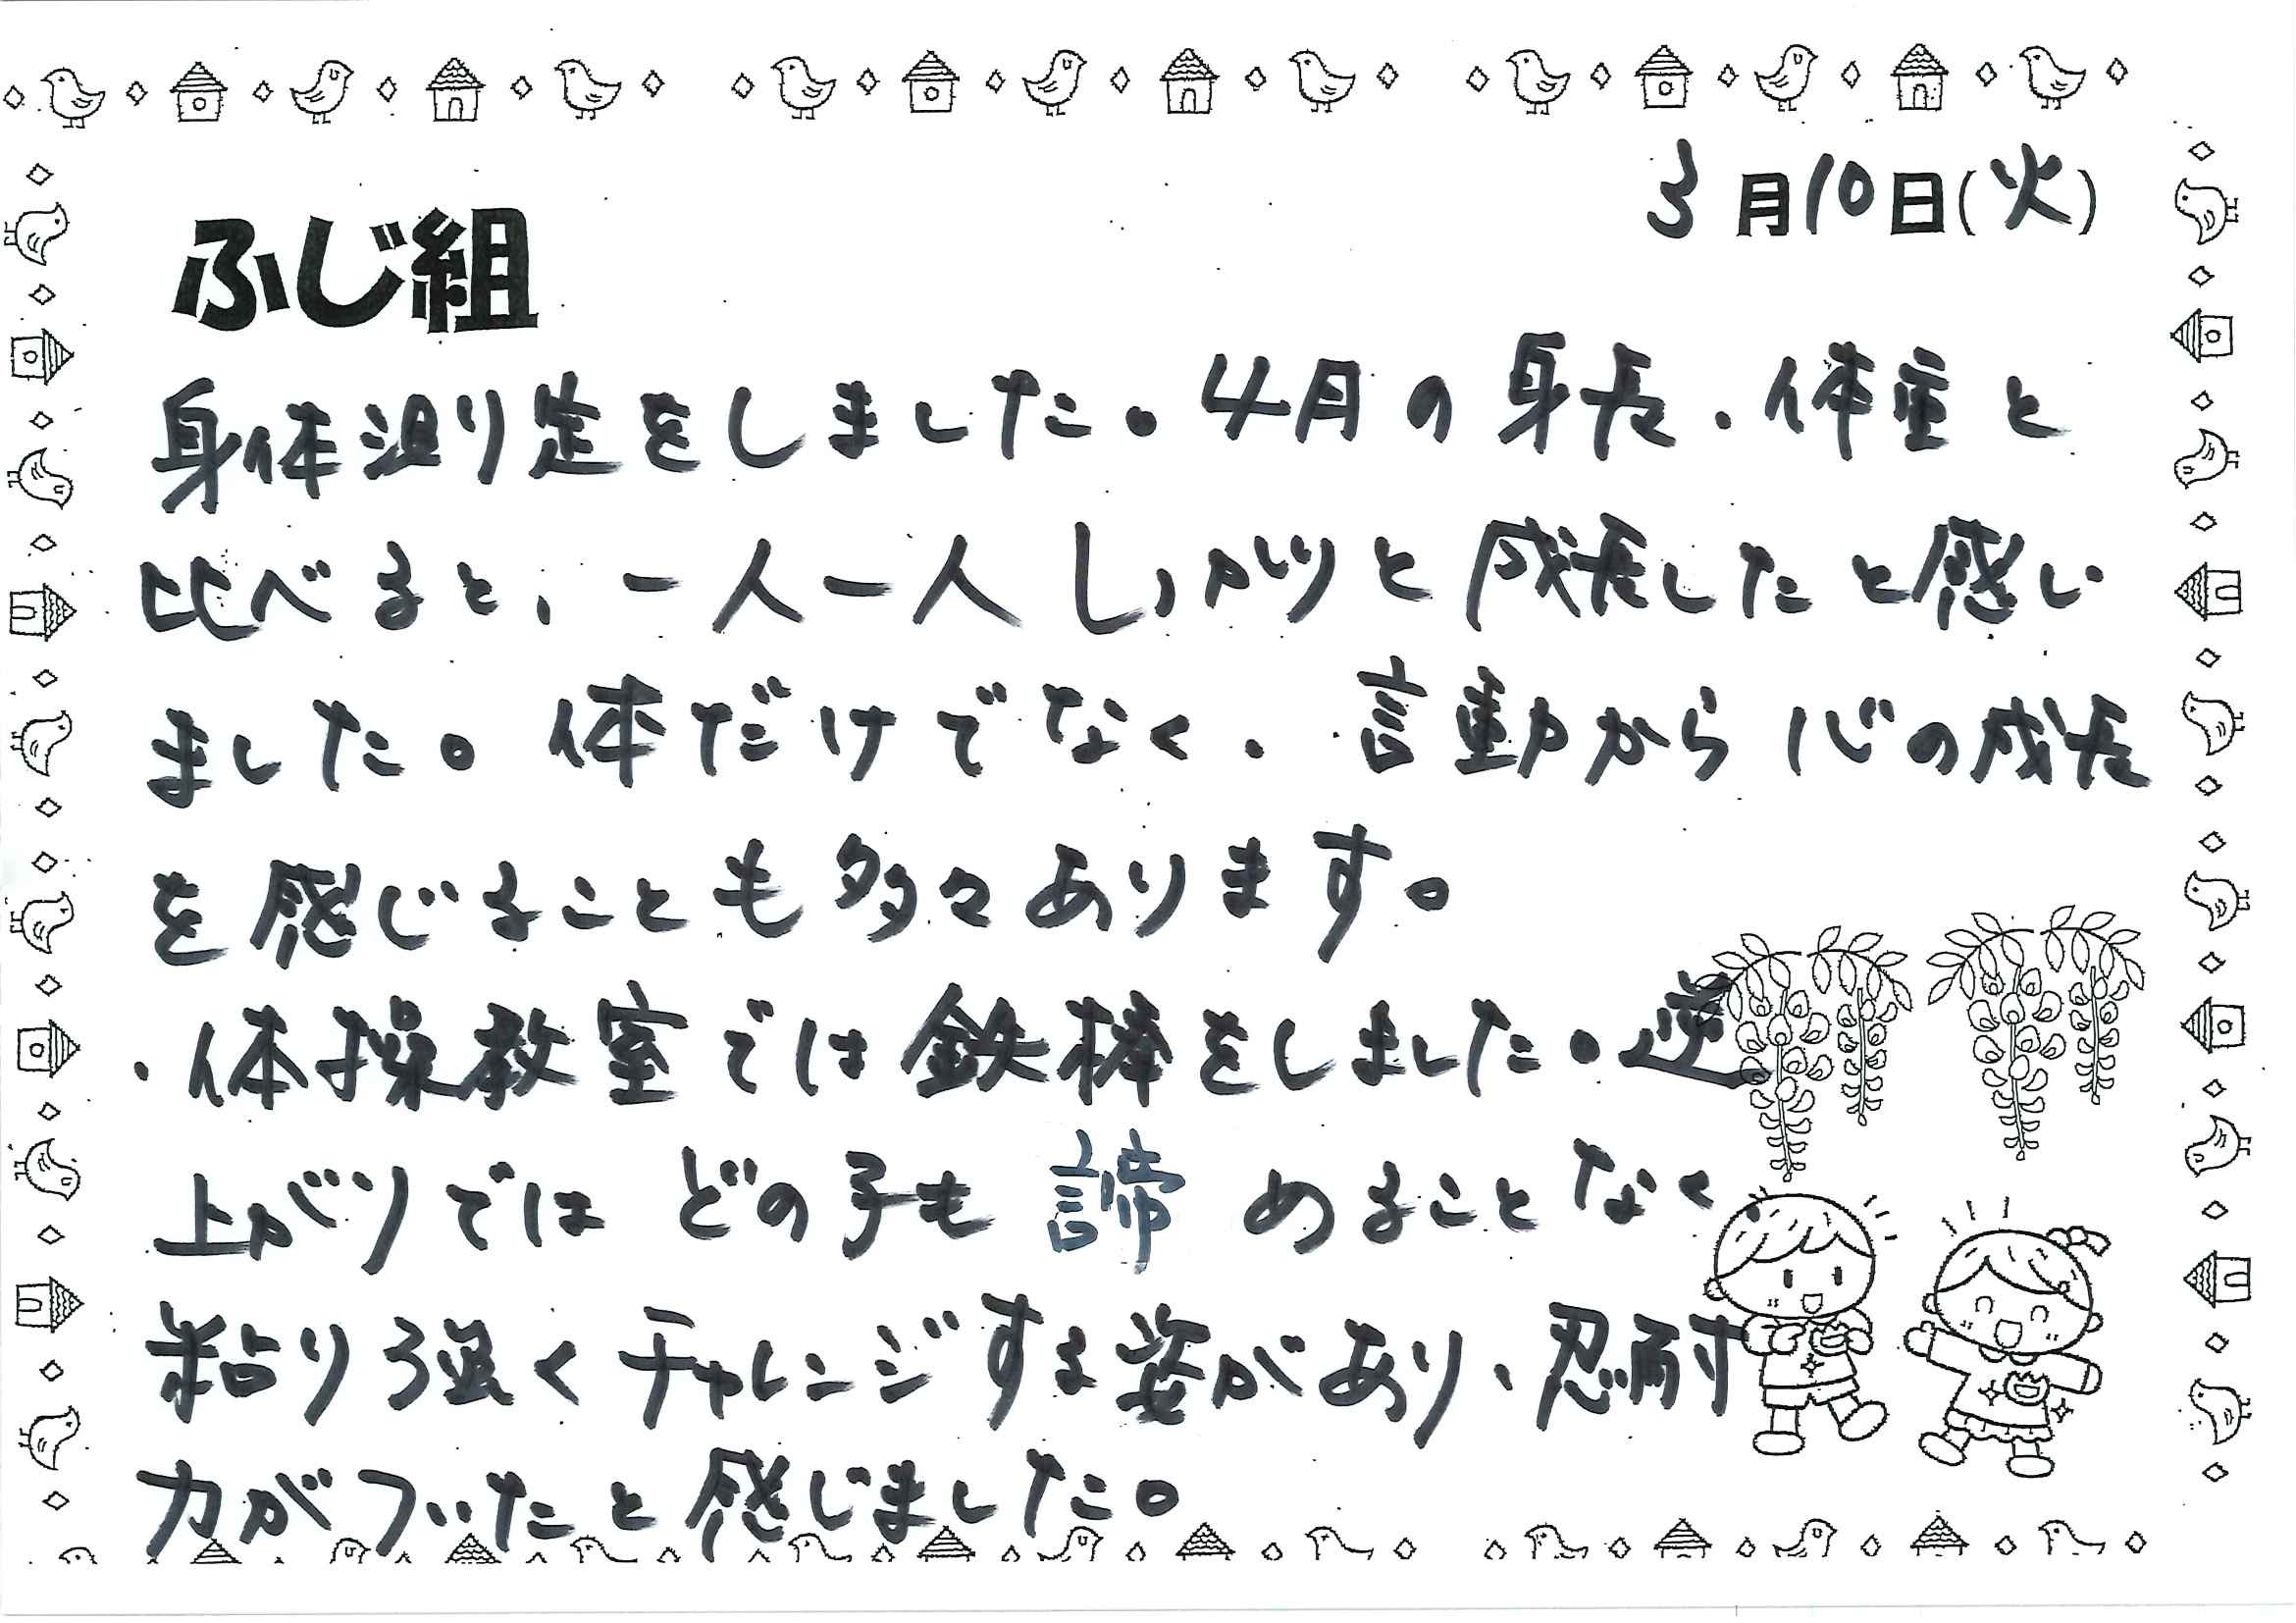 3月10日(火)
ふじ組
身体測り定をしました。4月の身長・体重と
比べると、一人一人しっかりと成長したと感じ
ました。体だけでなく、言動から心の成長
を感じることも多々あります。
・体操教室では鉄棒をしました。逆
上がりではどの子も諦めることなく、
粘り強くチャレンジする姿があり、忍耐
力がついたと感じました。